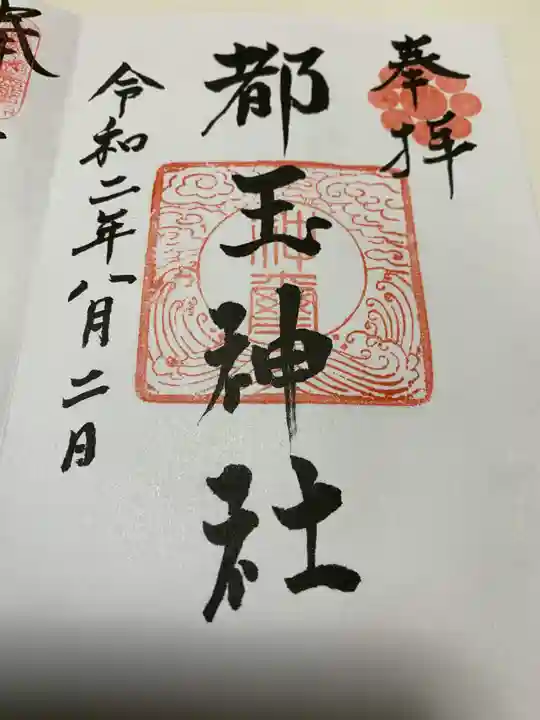 奉拝
都玉神社
令和二年八月二日